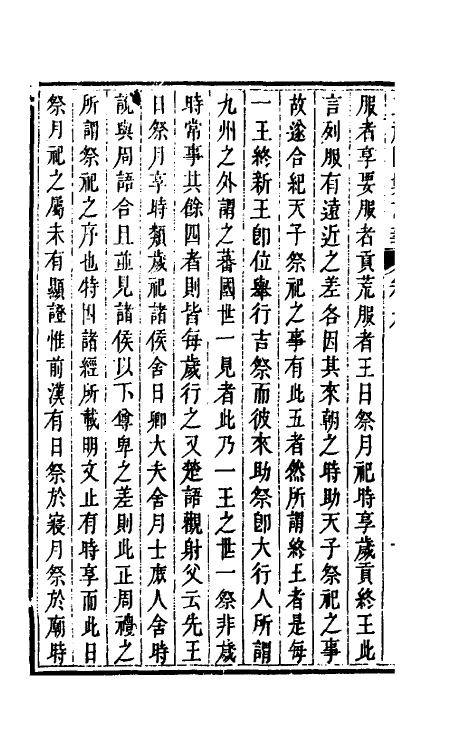 服者享要服者貢荒服者王日祭月祀時享歲貢終王此
言列服有遠近之差各因其來朝之時助天子祭祀之事
故遂合紀天子祭祀之事有此五者然所謂終王者是每
一王終新王卽位舉行吉祭而彼來助祭卽大行人所謂
九州之外謂之蕃國世一見者此乃一王之世一祭非歲
時常事其餘四者則皆每歲行之又楚語觀射父云先王
日祭月享時類歲祀諸侯舍日卿大夫舍月士庶人舍時
說與周語合且並見諸侯以下尊卑之差則此正周禮之
所謂祭祀之序也特因諸經所載明文止有時享而此日
祭月祀之屬未有顯證惟前漢有日祭於寢月祭於廟時